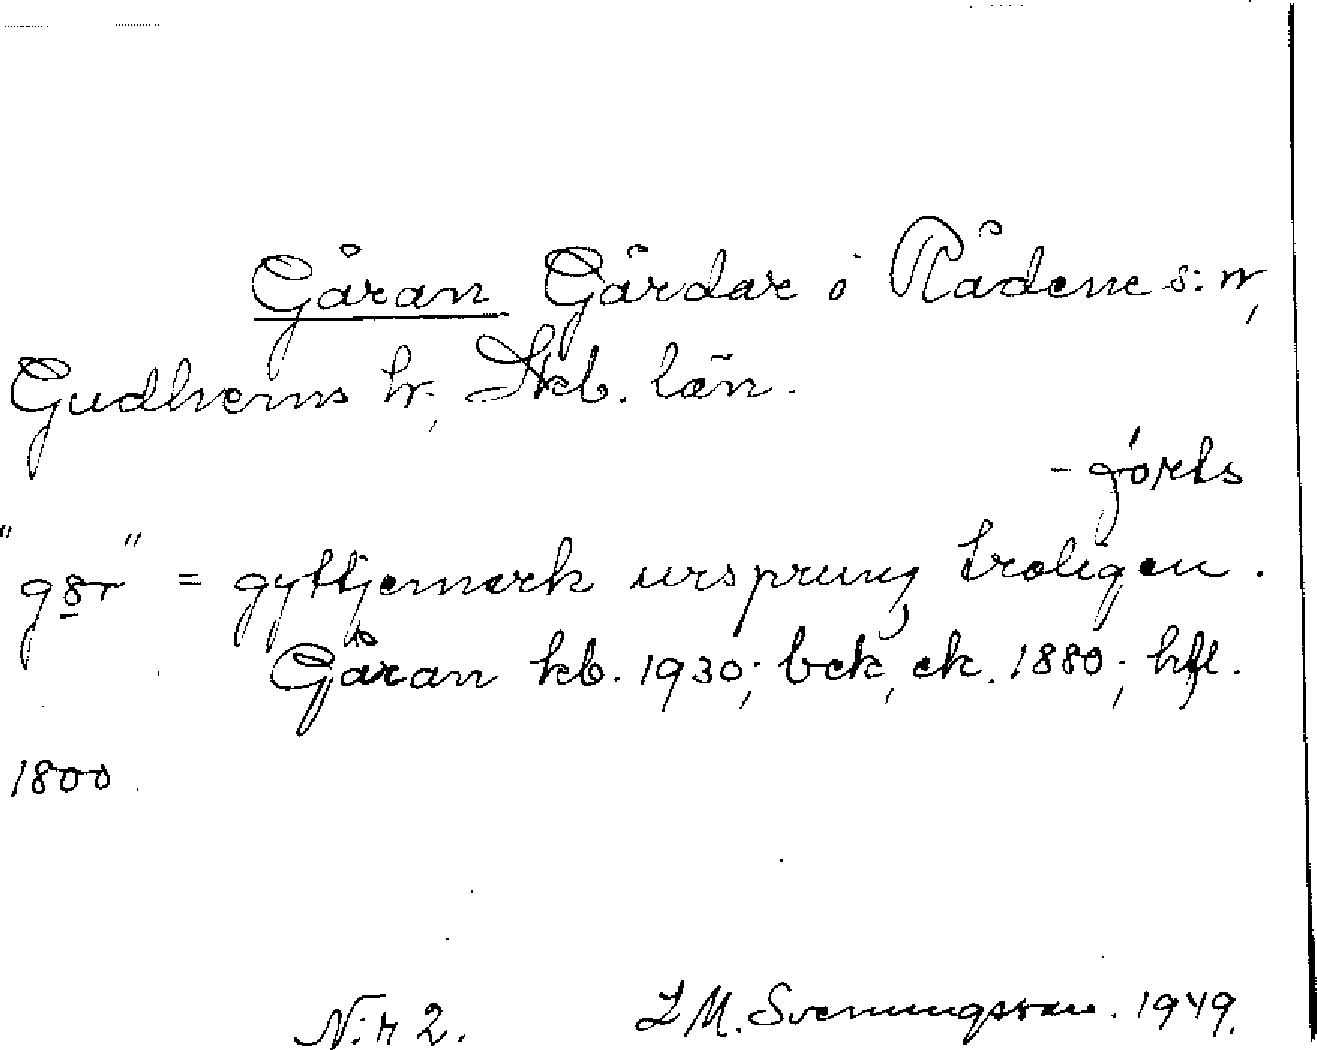 Gåran Gårdar i Rådene s:n,
Gudhems hr, Skb. län.
- förts
"går" = gyttjemark ursprung troligen.
Gåran kb. 1930; bck, ek. 1880; hfl.
1800
N:r 2. I M. Svenningsson. 1949.